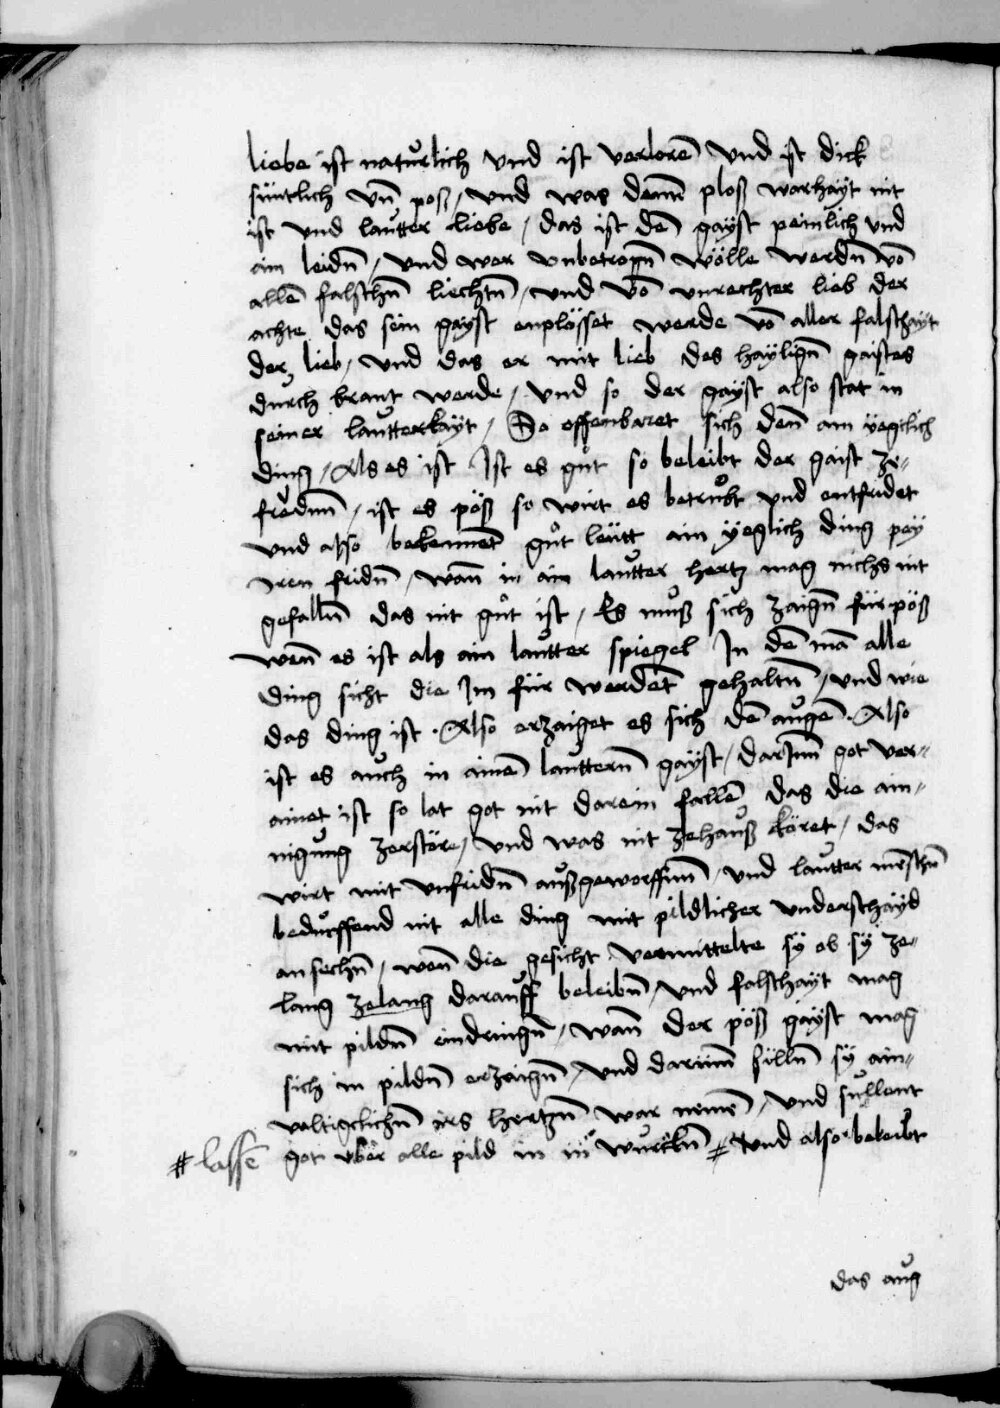 liebe ist natůrlich vnd ist verlorē vnd ist dick
süntlich vn̄ poß / vnd was dem̄ ploß warhayt nit
ist vnd lautter liebe / das ist dē gayst peinlich vnd
ain leidn̄ / vnd wer vnbetrogn̄ wölle werdn̄ vō
allē falschn̄ liechtn̄ / vnd vō vnrechter lieb der
achte das sein gayst enplösset werde vō aller falschayt
der lieb / vnd das er mit lieb des haylign̄ gaistes
durch brant werde / vnd so der gayst also stat in
seiner lautterkayt / So offenbaret sich den̄ am yegklich
ding / Als es ist Ist es gůt so beleibt der gaist ze-
frednn̄ / ist es pöß so wirt es betrůbt vnd entfridet
vnd also bekennēt gůt leütt ain yeglich ding pey
Iren fridn̄ / wan̄ in ain lautter hertz mag nichs nit
gefalln̄ das nit gůt ist / Es muß sich zaign̄ für pöß
wen̄ es ist als ain lautter spiegel In dē mā alle
ding sicht die Im für werdēt gehaltn̄ / vnd wie
das ding ist . Also erzaiget es sich dē augē . Also
ist es auch in ainē lauttern̄ gayst / darInn̄ got ver-
ainet ist so lat got nit darein fallē das die ain-
nigung zerstöre / vnd was nit zehauß höret / das
wirt mit vnfridn̄ außgeworffnn̄ / vnd lautter mēschn̄
bedurffend nit alle ding mit pildlicher vnderschayd
an sechn̄ / wen̄ die gesicht vermittelte sy ob sy ze-
lang zelang darauff beleibn̄ / vnd falschayt mag
mit pildn̄ eindringn̄ / wan̄ der pöß gayst mag
sich in pildn̄ erzaign̄ / vnd darum̄ sülln̄ sy ain-
valtigclichn̄ irs hertzn̄ war nemē / vnd sullent
# lassē got vber alle pild in in würckn̄ # Vnd also beleibt
das aug